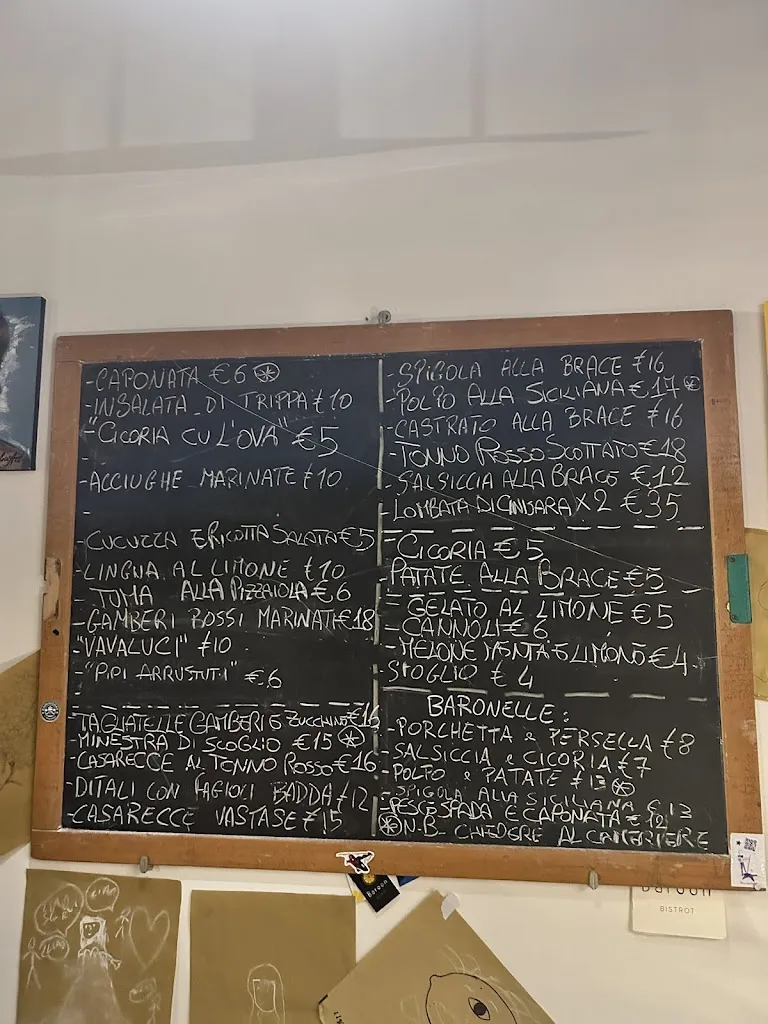 - CAPONATA €6
- INSALATA DI TRIPPA €10
- "CICORIA CU L'OVA" €5
- ACCIUGHE MARINATE €10
-
- CUCUZZA E RICOTTA SALATA €5
- LINGUA AL LIMONE €10
- TUMA ALLA PIZZAIOLA €6
- GAMBERI ROSSI MARINATI €18
- "VAVALUCI" €10
- "PIPI ARRUSTUTI" €6
- TAGLIATELLE GAMBERI E ZUCCHINE €16
- MINESTRA DI SCOGLIO €15
- CASARECCE AL TONNO ROSSO €16
- DITALI CON FAGIOLI BADDA €12
- CASARECCE VASTASE €15
- SPIGOLA ALLA BRACE €16
- POLPO ALLA SICILIANA €17
- CASTRATO ALLA BRACE €16
- TONNO ROSSO SCOTTATO €18
- SALSICCIA ALLA BRACE €12
- LOMBATA DI CINISARA X 2 €35
- CICORIA €5
- PATATE ALLA BRACE €5
- GELATO AL LIMONE €5
- CANNOLI €6
- MELONE MENTA E LIMONE €4
- SFOGLIO €4
BARONELLE:
- PORCHETTA e PERSELLA €8
- SALSICCIA e CICORIA €7
- POLPO e PATATE €13
- SPIGOLA ALLA SICILIANA €13
- PESCE SPADA E CAPONATA €12
N.B- CHIEDERE AL CAMERIERE
Baroon
Baroon
BISTROT